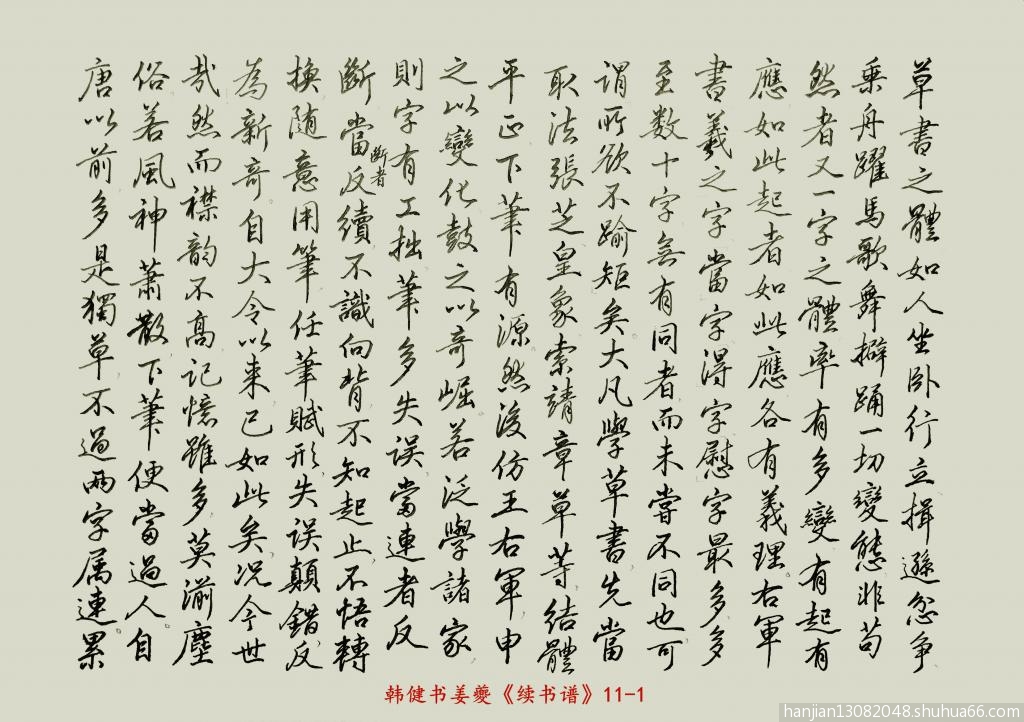 草書之體如人坐卧行立揖遜忿争
乗舟躍馬歌舞擗踊一切變態非苟
然者又一字之體率有多變有起有
應如此起者如此應各有義理右軍
書羲之字當字得字慰字最多多
至数十字無有同者而未嘗不同也可
謂所欲不踰矩矣大凡學草書先當
取法張芝皇象索靖章草等結體
平正下筆有源然後仿王右軍申
之以變化鼓之以奇崛若泛學諸家
則字有工拙筆多失误當連者反
斷當斷者反續不識向背不知起止不悟轉
换随意用筆任筆賦形失误顛錯反
為新奇自大令以来已如此矣况今世
哉然而襟韵不高记憶雖多莫湔塵
俗若風神蕭散下筆便當過人自
唐以前多是獨草不過两字属連累
韩健书姜夔《续书谱》11-1
hanjian13082048.shuhua66.com